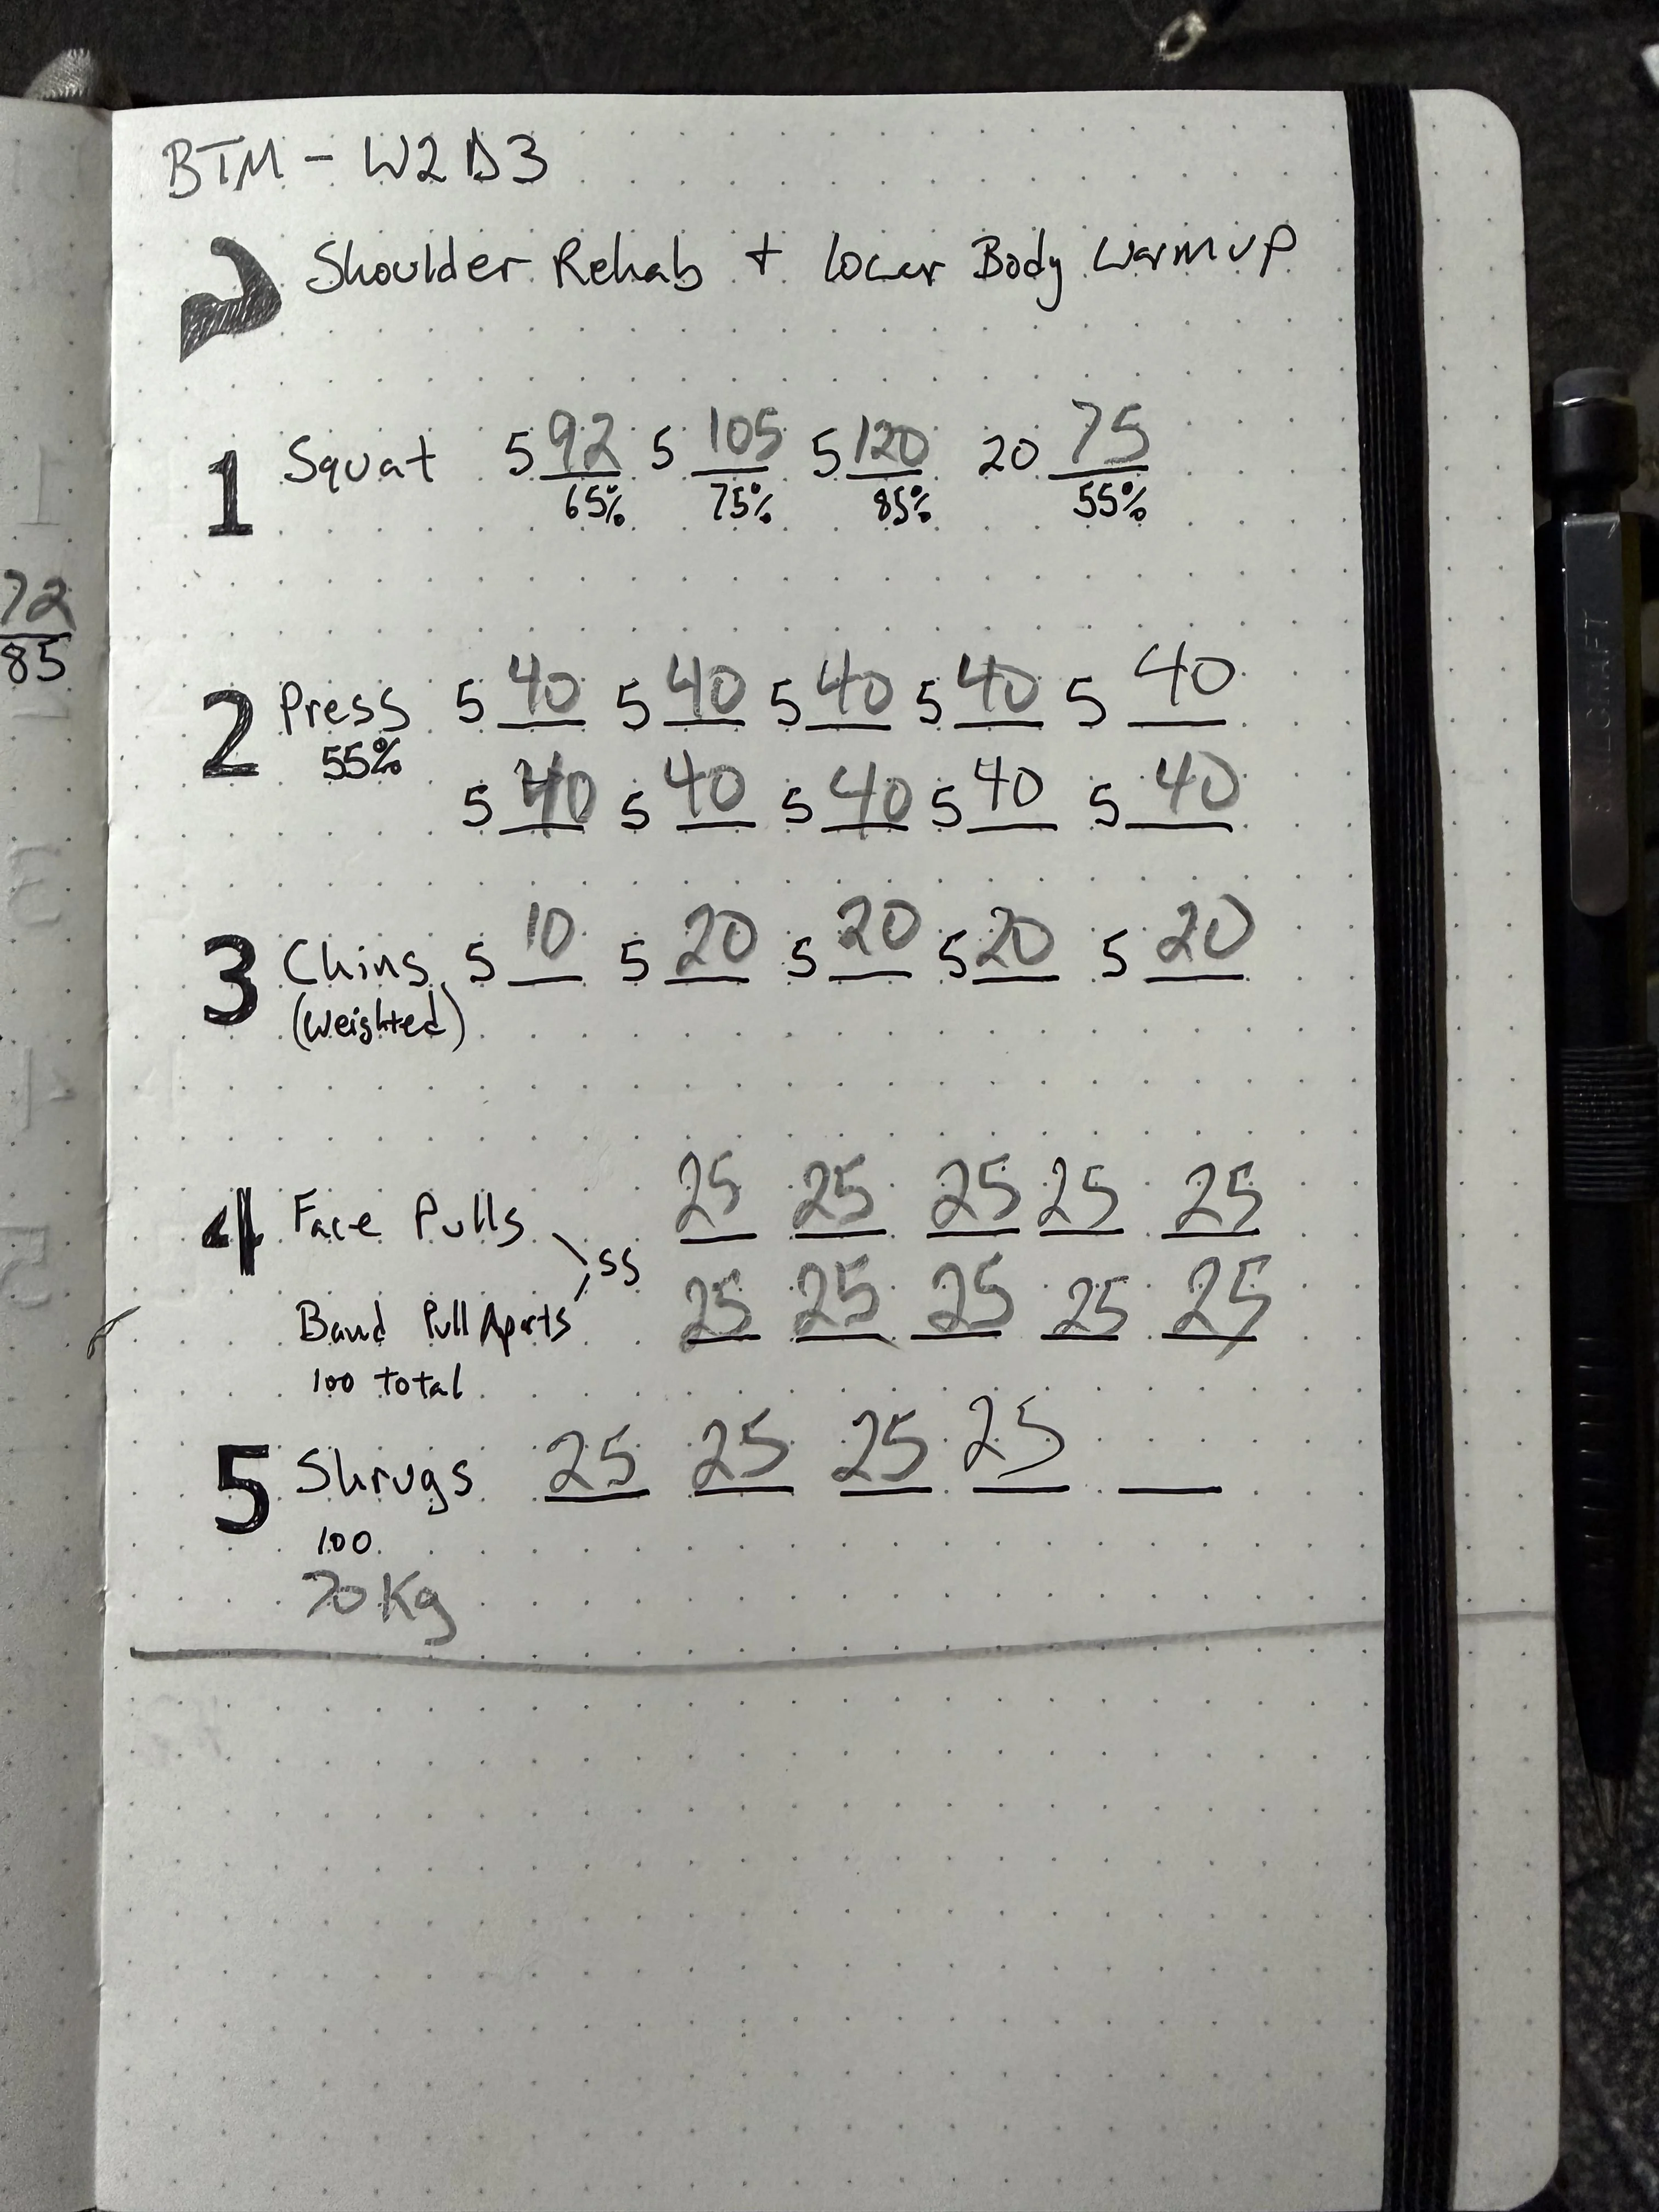 BTM - W2D3
Shoulder Rehab + Lower Body Warmup
1 Squat 5 92 5 105 5 120 20 75
65% 75% 85% 55%
72
85
2 Press 5 40 5 40 5 40 5 40 5 40
55%
5 40 5 40 5 40 5 40 5 40
3 Chins 5 10 5 20 5 20 5 20 5 20
(Weighted)
4 Face Pulls 25 25 25 25 25
SS
Band Pull Aparts 25 25 25 25 25
100 total
5 Shrugs 25 25 25 25
100
70Kg